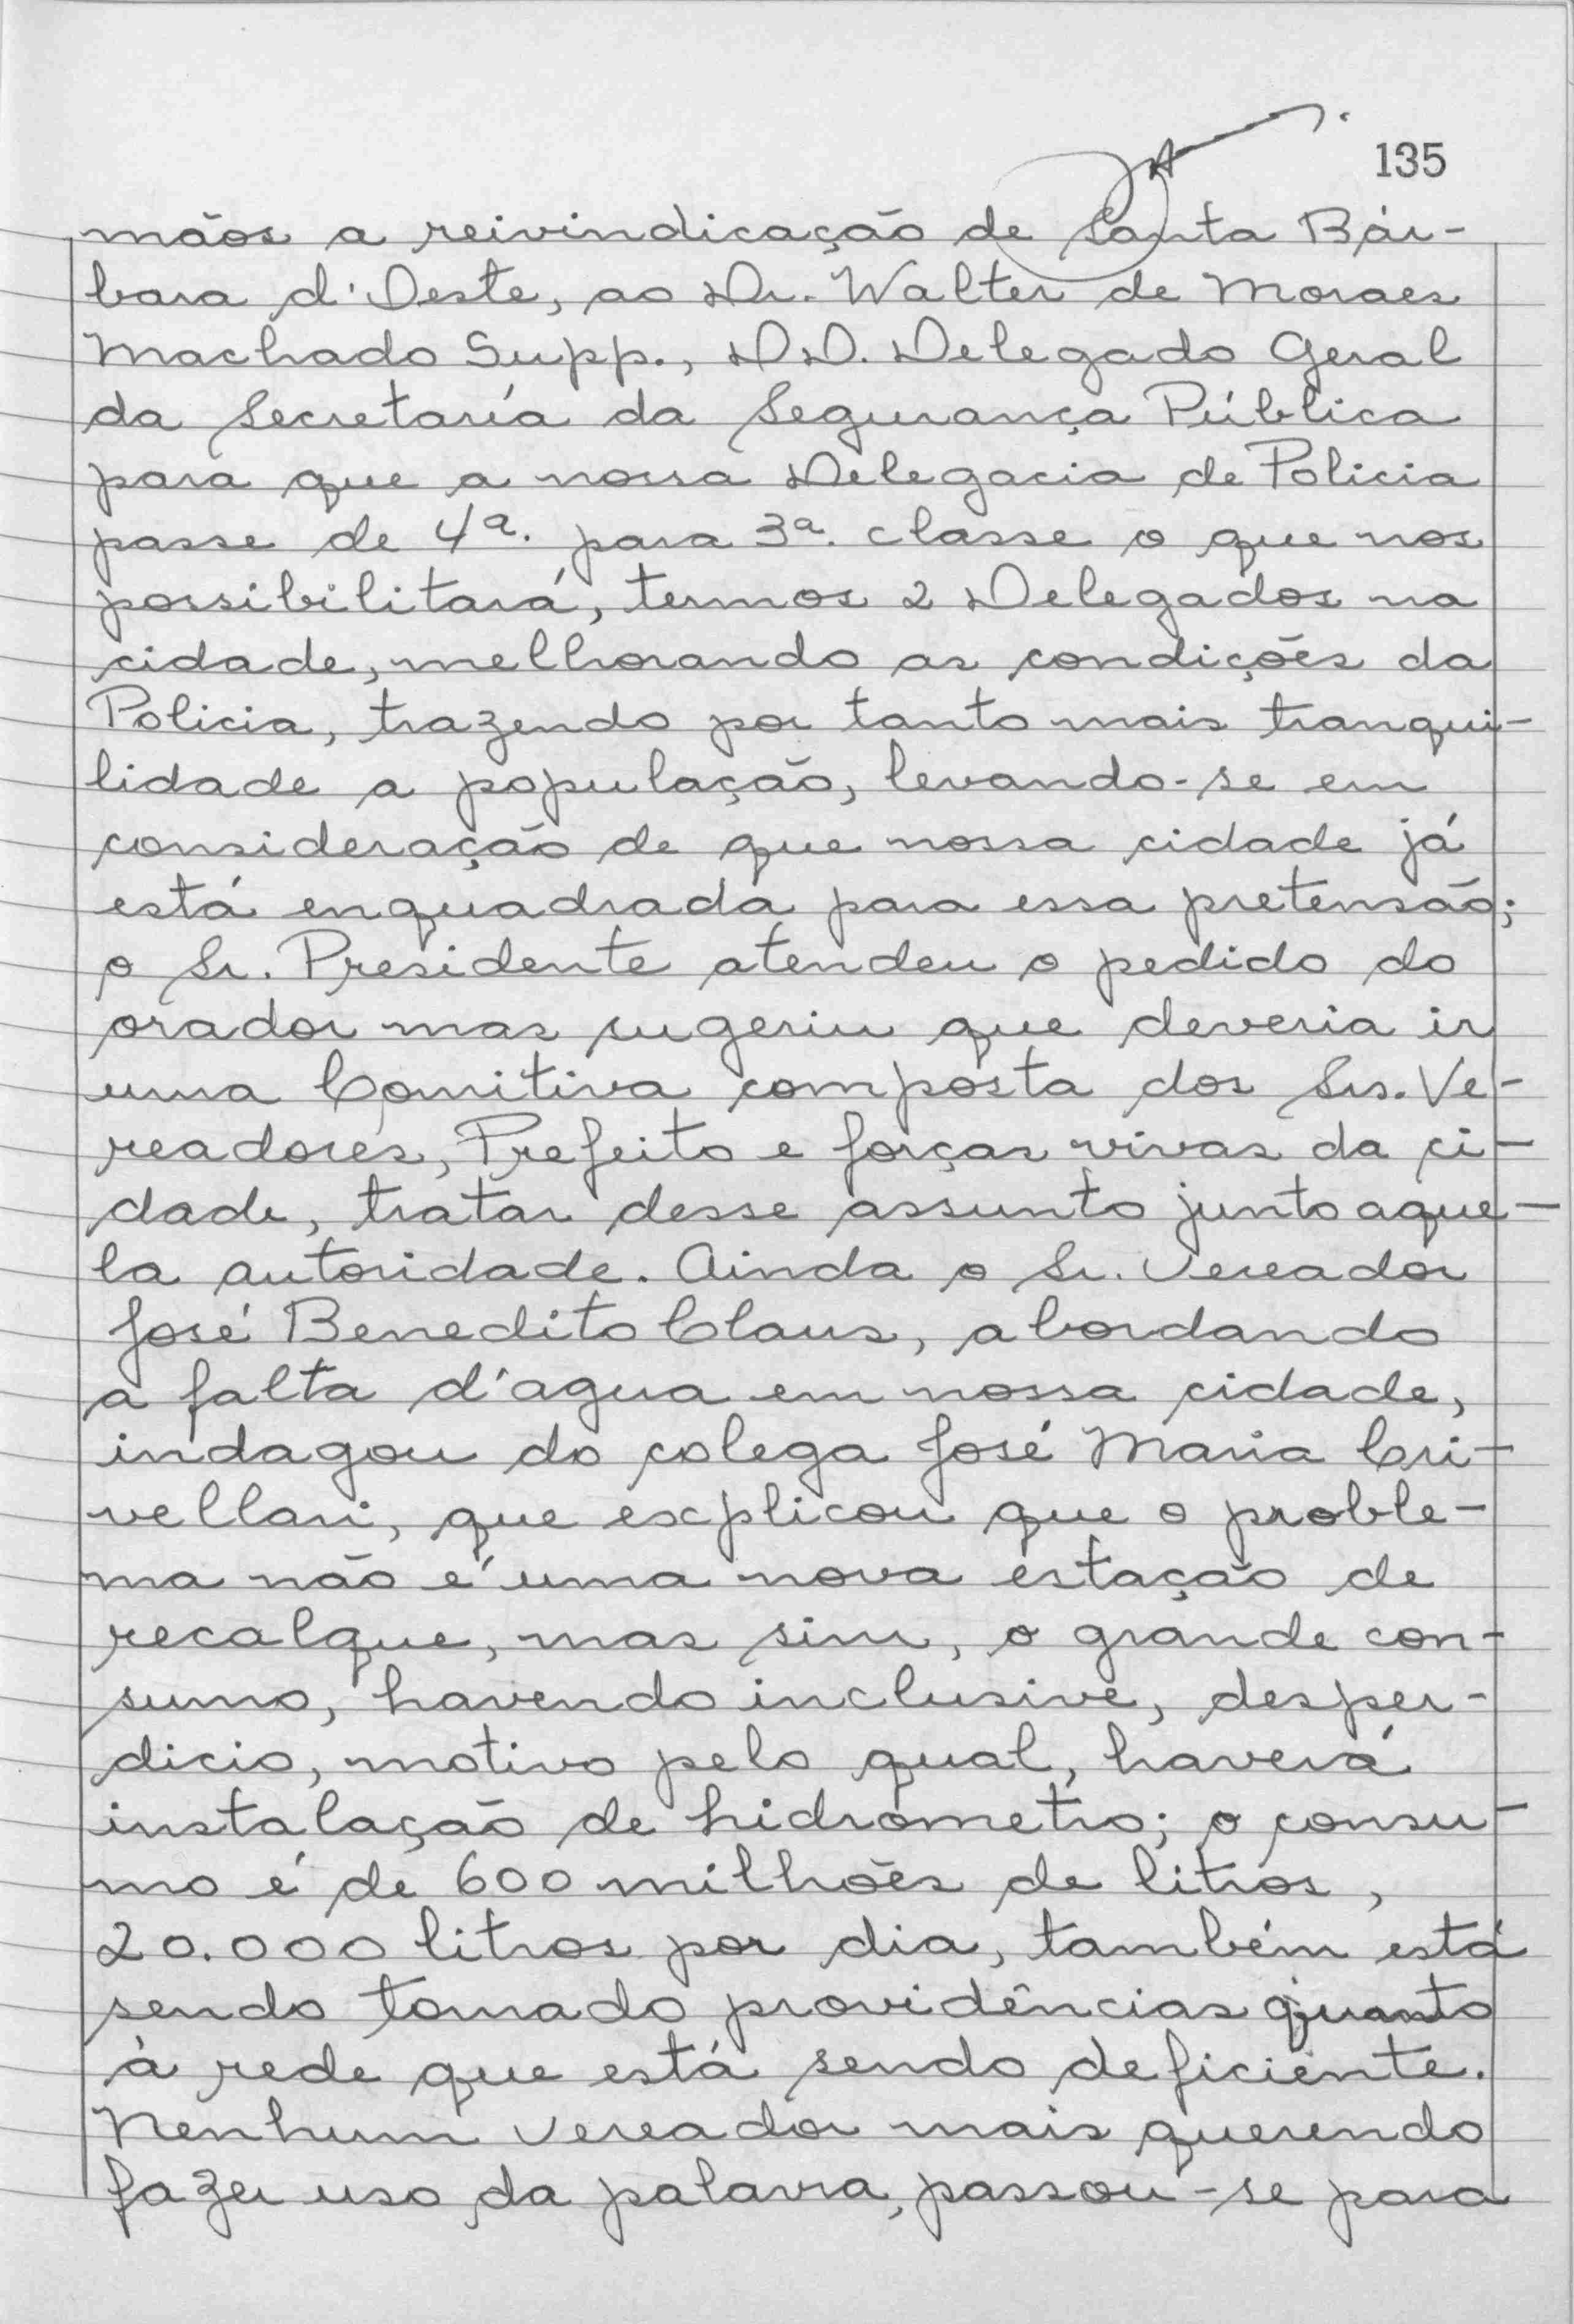 135
mãos a reivindicação de Santa Bár-
bara d'Oeste, ao Dr. Walter de Moraes
Machado Supp., DD. Delegado Geral
da Secretaría da Segurança Pública
para que a nossa Delegacia de Policia
passe de 4ª. para 3ª. classe o que nos
possibilitará, termos 2 Delegados na
cidade, melhorando as condições da
Policia, trazendo por tanto mais tranqui-
lidade a população, levando-se em
consideração de que nossa cidade já
está enquadrada para essa pretensão;
o Sr. Presidente atendeu o pedido do
orador mas sugeriu que deveria ir
uma Comitiva composta dos Srs. Ve-
readores, Prefeito e forças vivas da ci-
dade, tratar desse assunto junto aque-
la autoridade. Ainda o Sr. Vereador
José Benedito Claus, abordando
a falta d'agua em nossa cidade,
indagou do colega José Maria Cri-
vellari, que explicou que o proble-
ma não é uma nova estação de
recalque, mas sim, o grande con-
sumo, havendo inclusive, desper-
dicio, motivo pelo qual, haverá
instalação de hidrometro; o consu-
mo é de 600 milhões de litros,
20.000 litros por dia, também está
sendo tomado providências quanto
à rede que está sendo deficiente.
Nenhum Vereador mais querendo
fazer uso da palavra, passou-se para